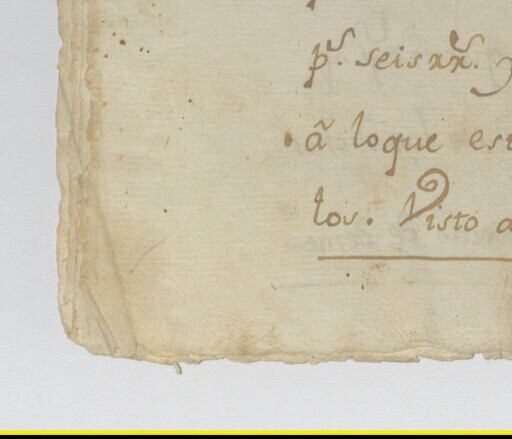 p.^s seis xx.^s
â loque est
los. Visto a